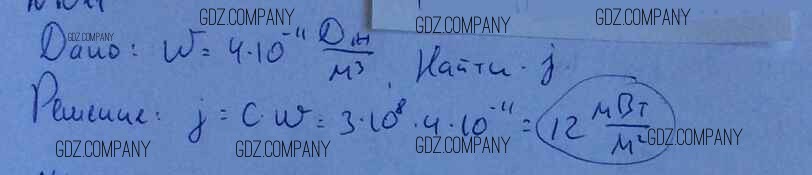 GDZ.COMPANY GDZ.COMPANY GDZ.COMPANY
Дано: W = 4·10⁻¹¹ Дж/м³. Найти j. GDZ.COMPANY
Решение: j = C·W = 3·10⁸·4·10⁻¹¹ = 12 мВт/м²
GDZ.COMPANY GDZ.COMPANY GDZ.COMPANY GDZ.COMPANY